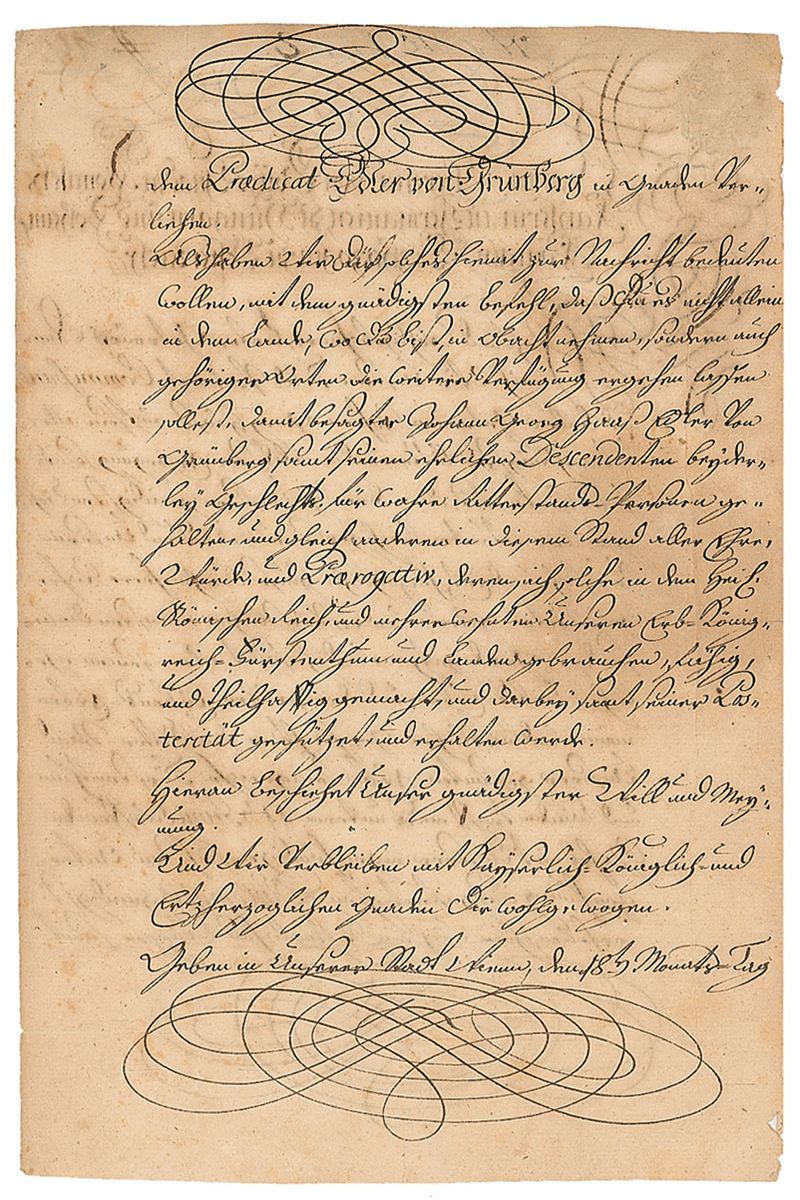 dem Prædicat Edler von Grünberg in Gnaden Ver-
liehen.
Als haben Wir Dir solches hiemit zur Nachricht bedeuten
wollen, mit dem gnädigsten Befehl, daß Du es nicht allein
in dem Lande, wo Du bist, in obacht nehmen, sondern auch
gehöriger Orten die weitere Verfügung ergehen lassen
sollest, damit besagter Johann Georg Haaß Edler Von
Grünberg samt seinen ehelichen Descendenten beyder-
ley Geschlechts für wahre Ritterstands-Personen ge-
halten, und gleich anderen in diesem Stand aller Ehre,
Würde, und Prærogativ, deren sich solche in dem Heil.
Römischen Reich, und mehrerwehnten Unseren Erb-König-
reich-Fürstenthum und Landen gebrauchen, fähig,
und theilhafftig gemacht, und darbey samt seiner Pos-
terität geschützet, und erhalten werde.
Hieran beschiehet Unser gnädigster Will und Mey-
nung.
Und Wir Verbleiben mit Kayserlich-Königlich-und
Ertzherzoglichen Gnaden Dir wohlgewogen.
Geben in Unserer Stadt Wienn, den 18t Monats-Tag